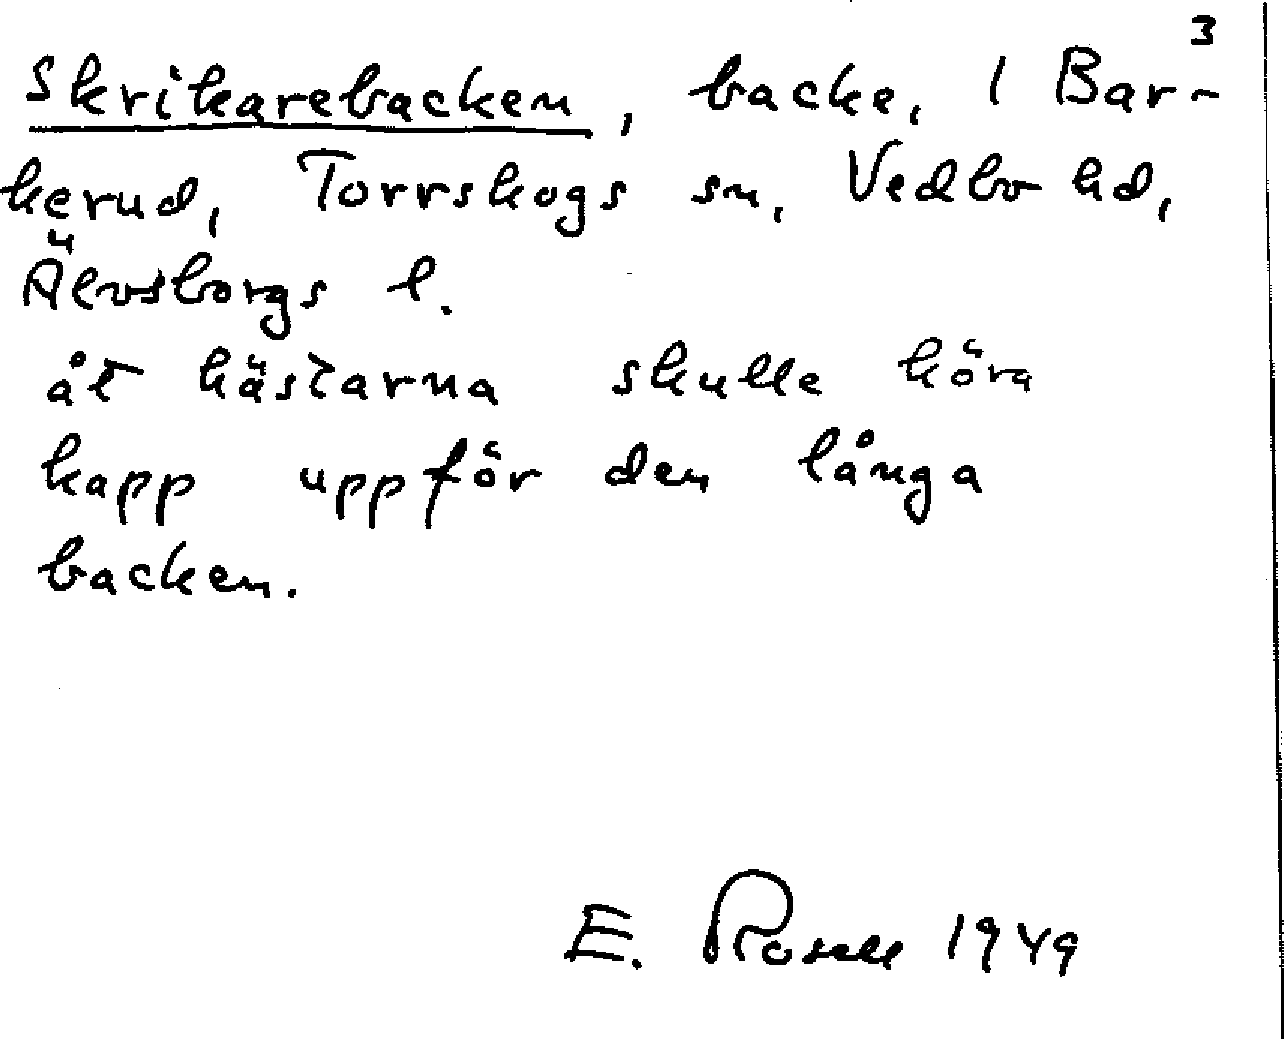 3
Skrikarebacken, backe, 1 Bar-
kerud, Torrskogs sn, Vedbo hd,
Älvsborgs l.
åt hästarna skulle köra
kapp uppför den långa
backen.
E. Rosell 1949